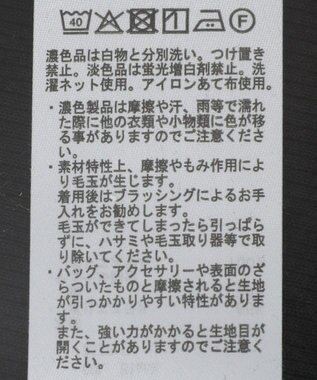 40 F
濃色品は白物と分別洗い。つけ置き
禁止。淡色品は蛍光増白剤禁止。洗
濯ネット使用。アイロンあて布使用。
・濃色製品は摩擦や汗、雨等で濡れ
た際に他の衣類や小物類に色が移
る事がありますのでご注意くださ
い。
・素材特性上、摩擦やもみ作用によ
り毛玉が生じます。
着用後はブラッシングによるお手
入れをお勧めします。
毛玉ができてしまったら引っぱら
ずに、ハサミや毛玉取り器等で取
り除いてください。
・バッグ、アクセサリーや表面のざ
らついたものと摩擦されると生地
が引っかかりやすい特性がありま
す。
また、強い力がかかると生地目が
開くことがありますのでご注意く
ださい。